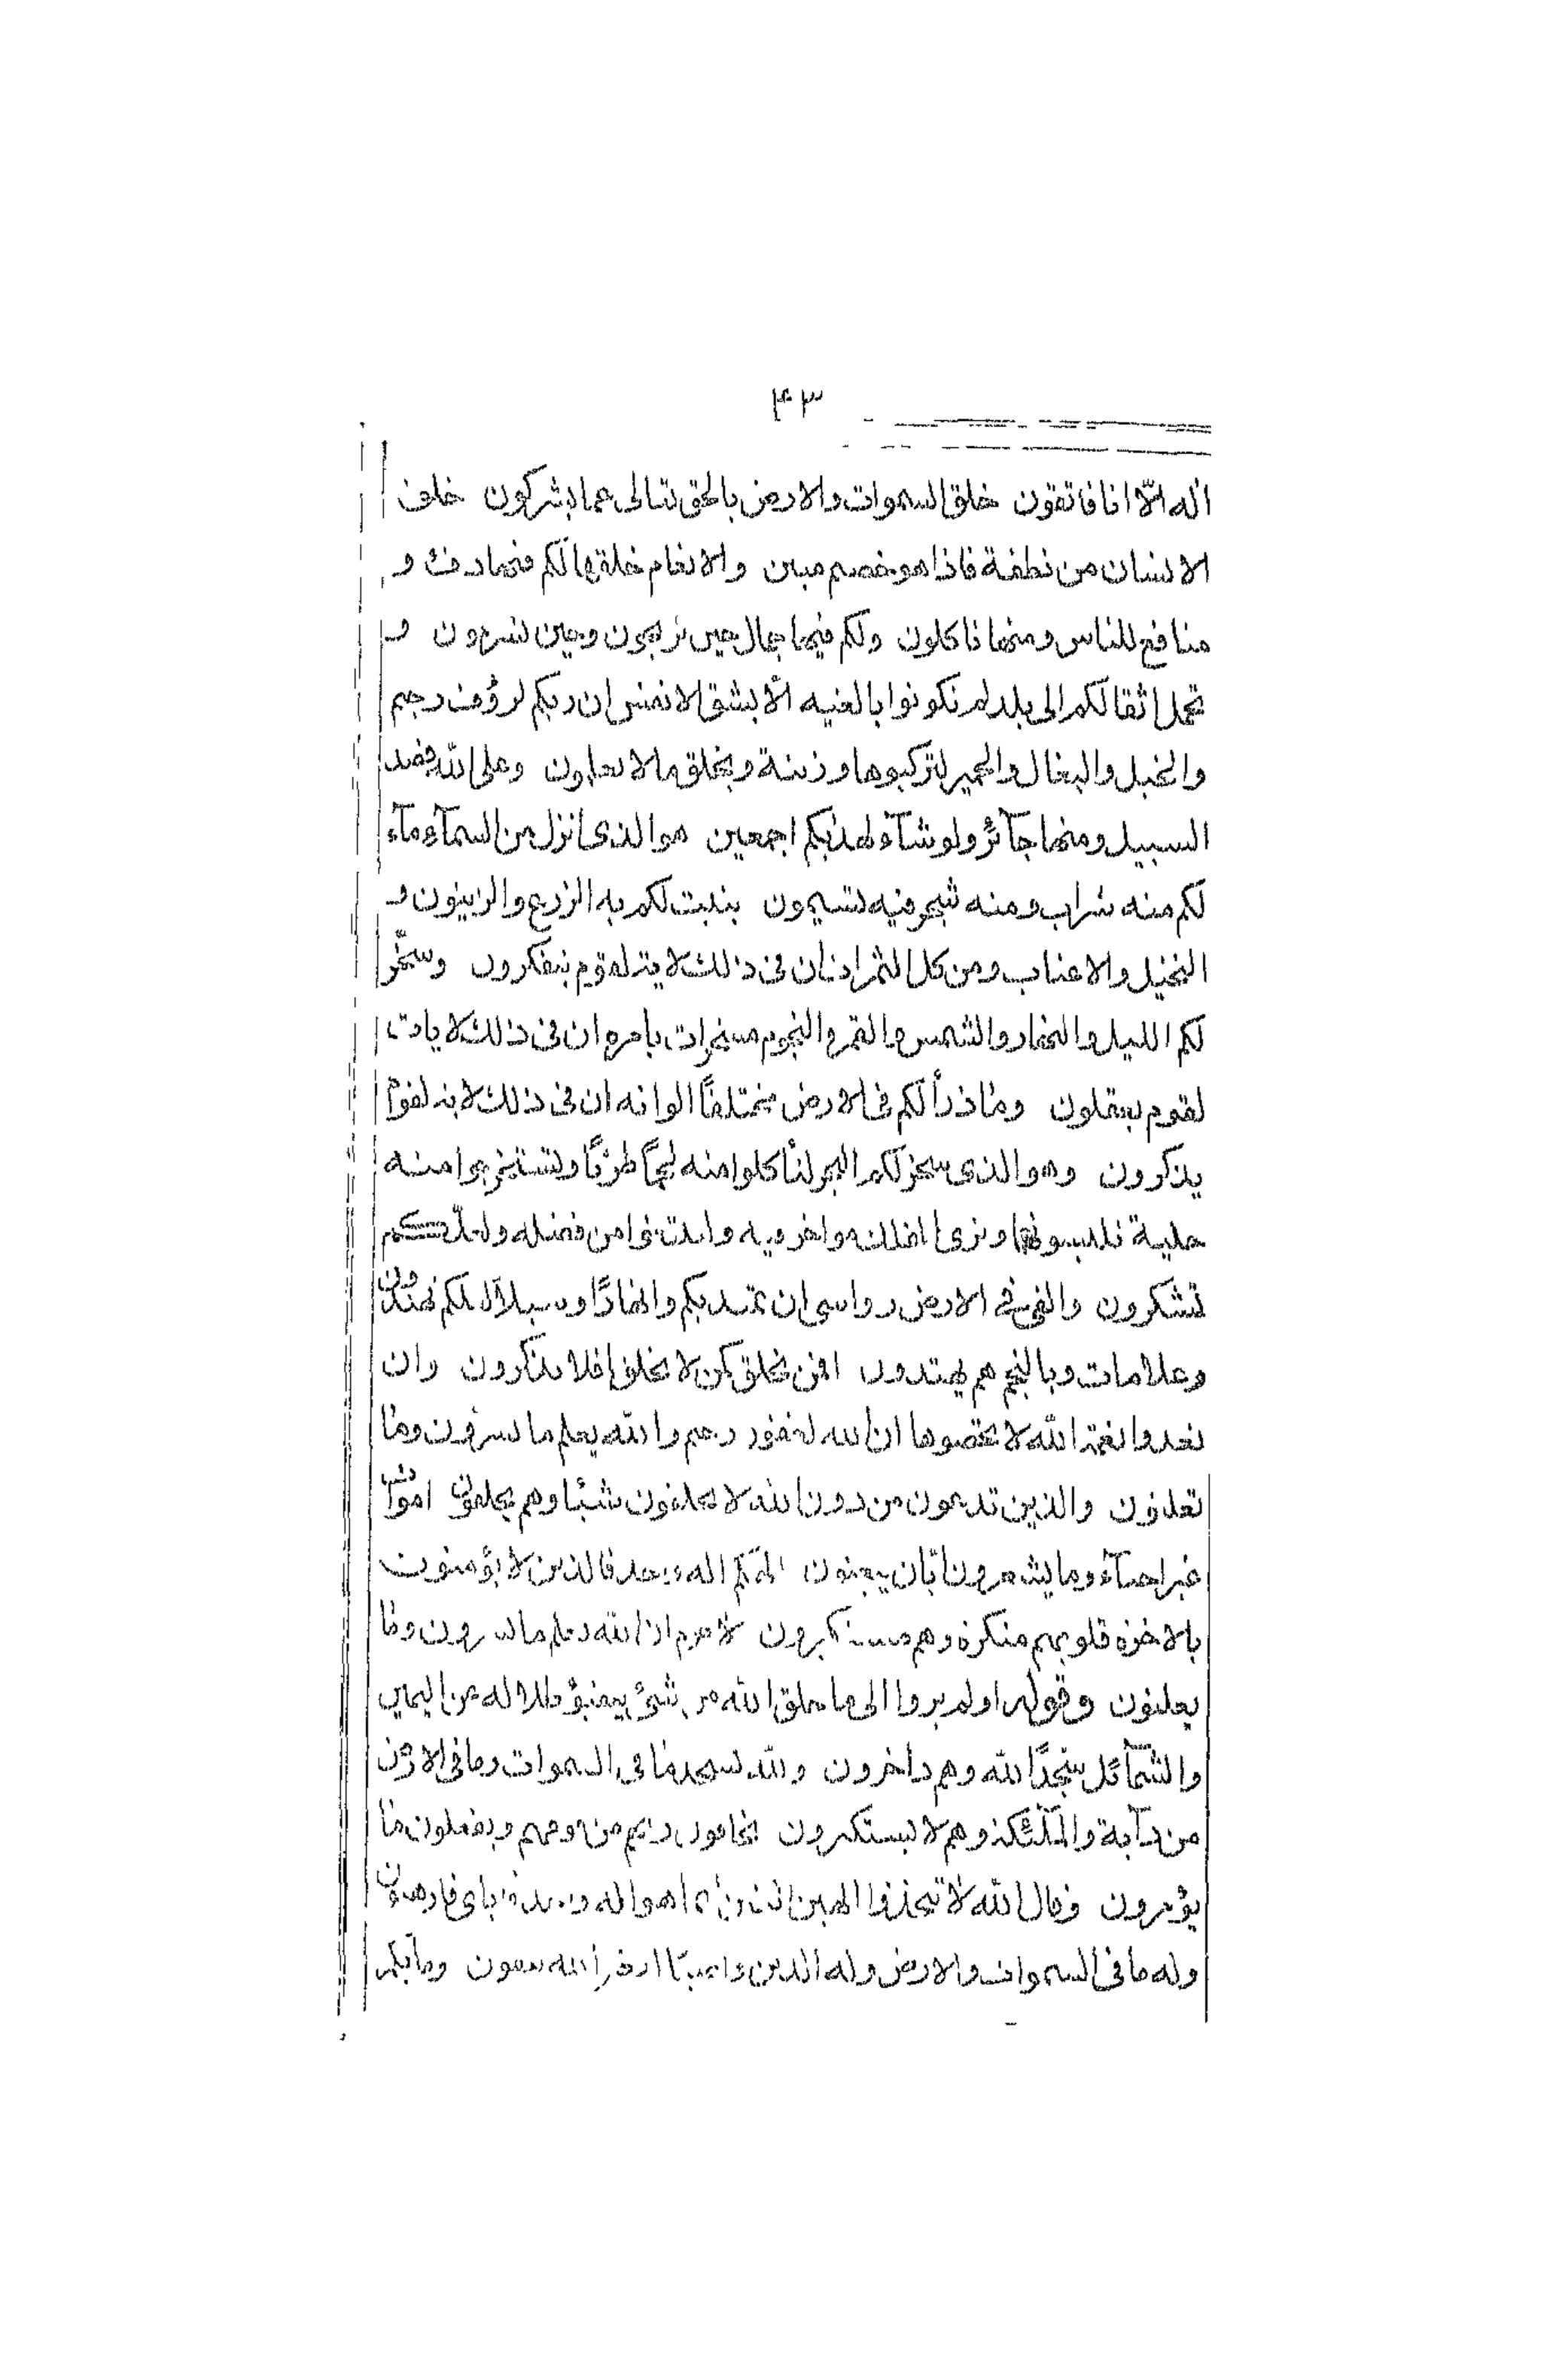 ۴۳
اله الّا انا فاتقون خلق السموات والارض بالحق تعالى عما يشركون خلق
الانسان من نطفة فاذا هو خصيم مبين والانعام خلقها لكم فيها دفء و
منافع للناس ومنها تاكلون ولكم فيها جمال حين تريحون وحين تسرحون و
تحمل اثقالكم الى بلد لم تكونوا بالغيه الّا بشق الانفس ان ربكم لرؤف رحيم
والخيل والبغال والحمير لتركبوها وزينة ويخلق ما لا تعلمون وعلى الله قصد
السبيل ومنها جآئر ولو شآء لهديكم اجمعين هو الذى انزل من السمآء مآء
لكم منه شراب ومنه شجر فيه تسيمون ينبت لكم به الزرع والزيتون و
النخيل والاعناب ومن كل الثمرات ان فى ذلك لاية لقوم يتفكرون وسخّر
لكم الليل والنهار والشمس والقمر والنجوم مسخرات بامره ان فى ذلك لايات
لقوم يعقلون وما ذرأ لكم فى الارض مختلفًا الوانه ان فى ذلك لاية لقوم
يذكرون وهو الذى سخر لكم البحر لتأكلوا منه لحمًا طريًا وتستخرجوا منه
حلية تلبسونها وترى الفلك مواخر فيه ولتبتغوا من فضله ولعلّكم
تشكرون والقى فى الارض رواسى ان تميد بكم وانهارًا وسبلاً لعلكم تهتدون
وعلامات وبالنجم هم يهتدون افمن يخلق كمن لا يخلق افلا تذكرون وان
تعدوا نعمة الله لا تحصوها ان الله لغفور رحيم والله يعلم ما تسرون وما
تعلنون والذين تدعون من دون الله لا يخلقون شيئا وهم يخلقون اموات
غير احيآء وما يشعرون ايّان يبعثون الهكم اله واحد فالذين لا يؤمنون
بالاخرة قلوبهم منكرة وهم مستكبرون لا جرم ان الله يعلم ما يسرون وما
يعلنون وقوله اولم يروا الى ما خلق الله من شئ يتفيؤ ظلاله عن اليمين
والشمآئل سجدًا لله وهم داخرون ولله يسجد ما فى السموات وما فى الارض
من دآبة والملئكة وهم لا يستكبرون يخافون ربهم من فوقهم ويفعلون ما
يؤمرون وقال الله لا تتخذوا الهين اثنين انما هو اله واحد فاياى فارهبون
وله ما فى السموات والارض وله الدين واصبًا افغير الله تتقون وما بكم